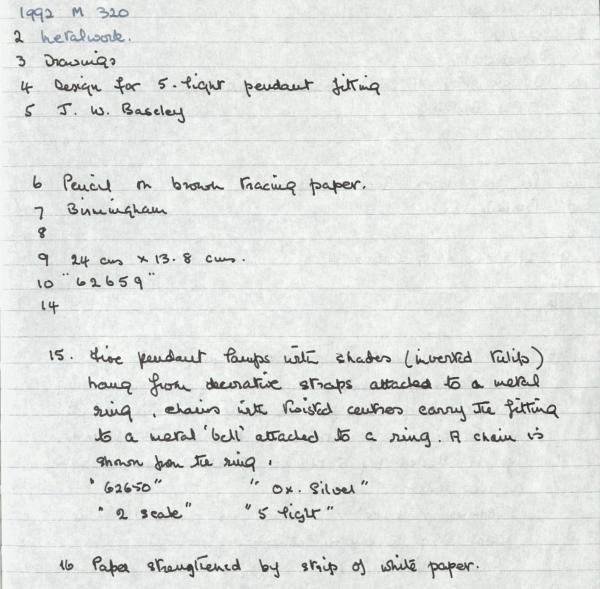 1992 M 320
2 Metalwork.
3 Drawings
4 Design for 5-light pendant fitting
5 J. W. Baseley
6 Pencil on brown tracing paper.
7 Birmingham
8
9 24 cms x 13.8 cms.
10 "62659"
14
15. Five pendant lamps with shades (inverted tulip)
hang from decorative straps attached to a metal
ring. Chains with twisted centres carry the fitting
to a metal 'bell' attached to a ring. A chain is
shown from the ring.
"62650" "Ox. Silver"
"2 scale" "5 light"
16 Paper strengthened by strip of white paper.